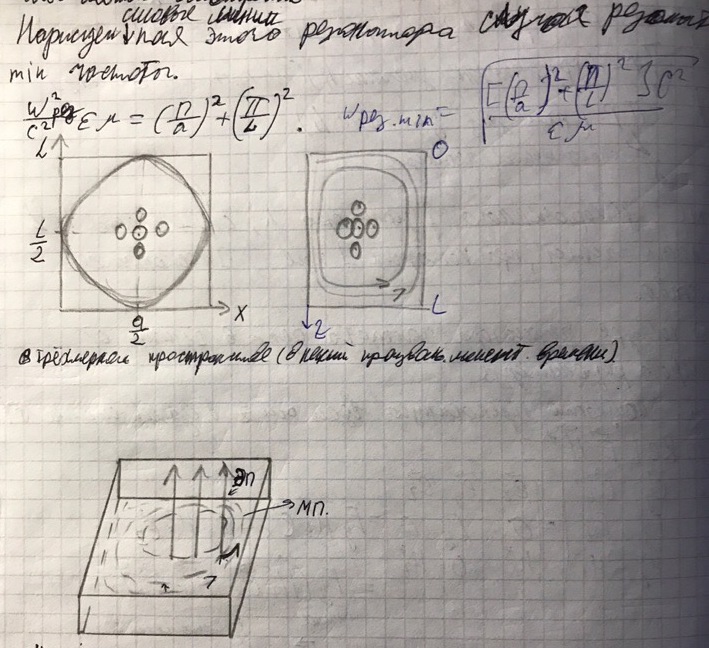 силовые линии
Нарисуем поля этого резонатора случая
min частоты.
W²рез/c² εμ = (π/a)² + (π/L)².
Wрез.min = √([(π/a)² + (π/L)²]c²/εμ)
L
O
L/2
a/2
X
z
L
в трёхмерном пространстве (в некий произвольн. момент. времени)
эп
МП.